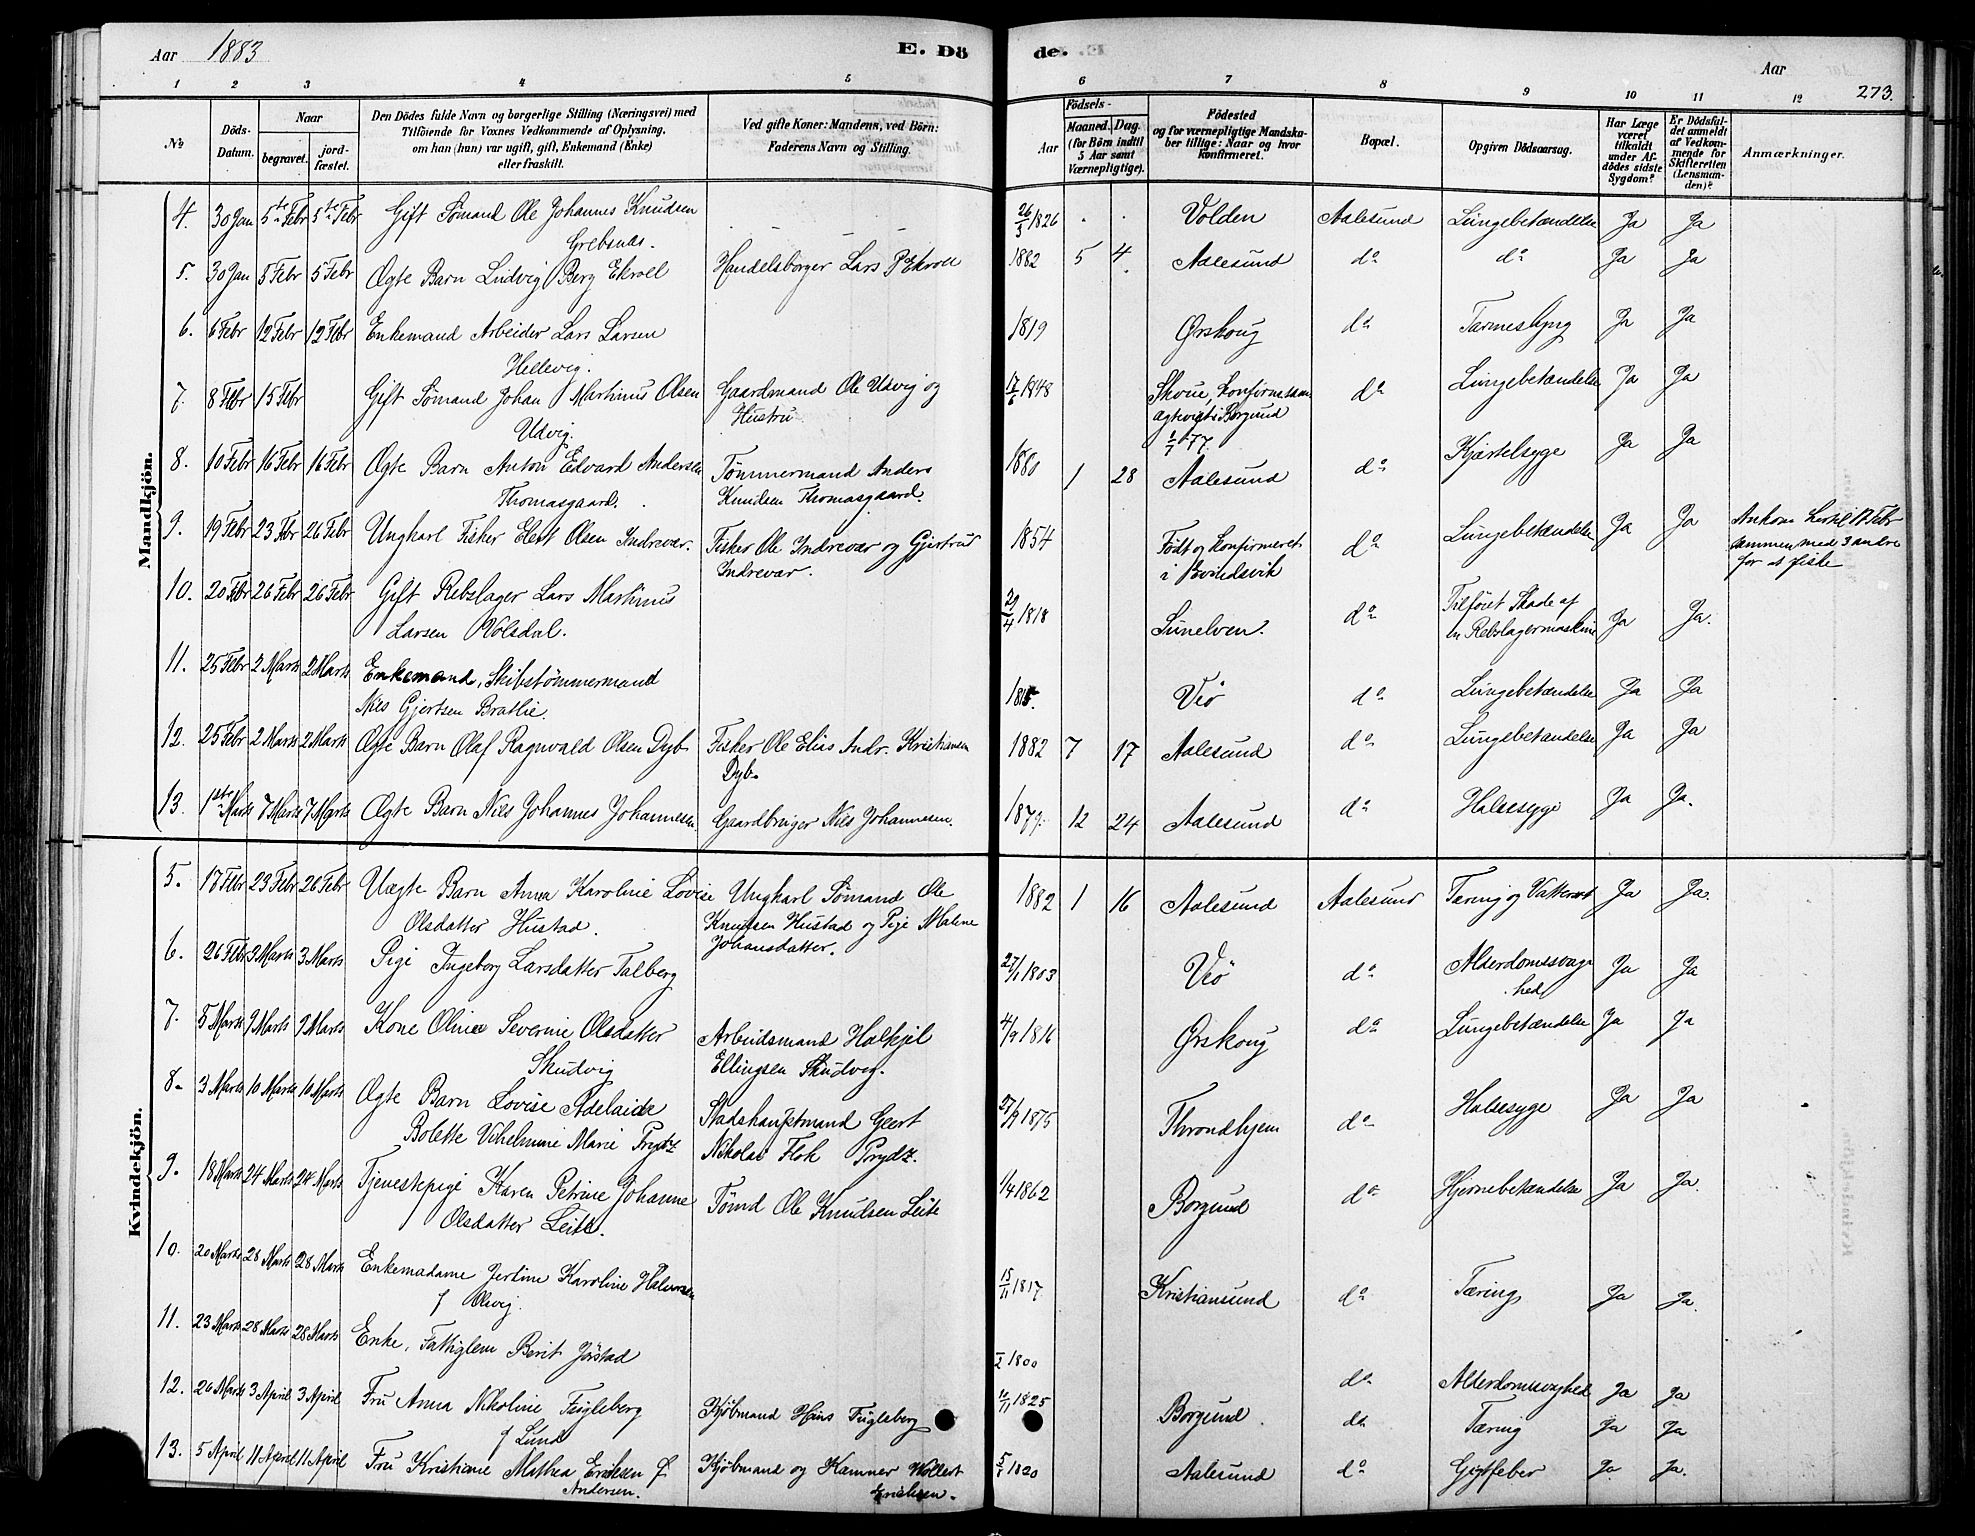 Aar 1883
E. Dö
de.
Aar
273.
1 2 3 4 5 6 7 8 9 10 11 12
№
Döds-Datum.
Naar
begravet.
jord-fæstet.
Den Dödes fulde Navn og borgerlige Stilling (Næringsvei) med
Tilföiende for Voxnes Vedkommende af Oplysning,
om han (hun) var ugift, gift, Enkemand (Enke)
eller fraskilt.
Ved gifte Koner: Mandens, ved Börn:
Faderens Navn og Stilling.
Födsels-
Aar
Maaned. Dag.
(for Börn indtil
5 Aar samt
Værnepligtige).
Födested
og for værnepligtige Mandska-
ber tillige: Naar og hvor
konfirmeret.
Bopæl.
Opgiven Dödsaarsag.
Har Læge
været
tilkaldt
under Af-
dödes sidste
Sygdom?
Er Dödsfal-
det anmeldt
af Vedkom-
mende for
Skifteretten
(Lensman-
den)?
Anmærkninger.
Mandkjön.
4. 30 Jan 5te Febr 5te Febr Gift Sömand Ole Johannes Knudsen 26/3 1826 Volden Aalesund Lungebetændelse Ja Ja
Grebsnæs.
5. 30 Jan 5 Febr 5 Febr Ægte Barn Ludvig Berg Ekroll Handelsborger Lars P Ekroll 1882 5 4 Aalesund do do Ja Ja
6. 6 Febr 12 Febr 12 Febr Enkemand Arbeider Lars Larsen 1819 Ørskoug do Tarmeslyng Ja Ja
Hellevig.
7. 8 Febr 15 Febr Gift Sömand Johan Martinus Olsen Gaardmand Ole Udvig og 17/6 1848 Skoue, do Lungebetændelse Ja Ja
Udvig. Hustru Borgund
77.
8. 10 Febr 16 Febr 16 Febr Ægte Barn Anton Edvard Andersen Tömmermand Anders 1880 1 28 Aalesund do Kjertelsyge Ja Ja
Thomasgaard. Knudsen Thomasgaard.
9. 19 Febr 23 Febr 26 Febr Ungkarl Fisker Elert Olsen Indrevær. Fisker Ole Indrevær og Gjertrud 1854 Födt og konfirmeret do Lungebetændelse Ja Ja Ankom hertil 17 Febr
Indrevær. i sammen med 3 andre
for at fiske
10. 20 Febr 26 Febr 26 Febr Gift Rebslager Lars Martinus 29/4 1818 Sunelven. do Tilföiet Skade af Ja Ja.
Larsen Kolsdal. en Rebslagermaskine
11. 25 Febr 2 Marts 2 Marts Enkemand, Skibstömmermand 1815. Veö do Lungebetændelse Ja Ja
Nils Gjertsen Bratlie.
12. 25 Febr 2 Marts 2 Marts Ægte Barn Olaf Ragnvald Olsen Dyb Fisker Ole Elias Andr. Kristiansen 1882 7 17 Aalesund do Lungebetændelse Ja Ja
Dyb.
13. 1ste Marts 7 Marts 7 Marts Ægte Barn Nils Johannes Johannesen Gaardbruger Nils Johannesen. 1879. 12 24 Aalesund do Halsesyge Ja Ja.
Kvindekjön.
5. 17 Febr 23 Febr 26 Febr Uægte Barn Anna Karoline Lovise Ungkarl Sömand Ole 1882 1 16 Aalesund Aalesund Tæring og Ja Ja.
Olsdatter Hustad. Knudsen Hustad og Pige Malene
Johansdatter.
6. 26 Febr 3 Marts 3 Marts Pige Ingeborg Larsdatter Talberg 27/1 1803 Veö do Alderdomssvag- Ja Ja
hed
7. 5 Marts 9 Marts 9 Marts Kone Oline Severine Olsdatter Arbeidsmand Halkjel 4/9 1816 Ørskoug do Lungebetændelse Ja Ja
Skudvig Ellingsen Skudvig.
8. 3 Marts 10 Marts 10 Marts Ægte Barn Lovise Adelaide Stadshauptmand Geert 27/9 1875 Throndhjem do Halsesyge Ja Ja
Bolette Vilhelmine Marie Prydz Nikolai Flok Prydz.
9. 18 Marts 24 Marts 24 Marts Tjenestepige Karen Petrine Johanne Tömd Ole Knudsen Leite 1/4 1862 Borgund do Hjernebetændelse Ja Ja.
Olsdatter Leite.
10. 20 Marts 28 Marts 28 Marts Enkemadame Jertine Karoline Halvorsen 15/11 1817 Kristiansund do Tæring Ja Ja.
f Olvig.
11. 23 Marts 28 Marts 28 Marts Enke, Fattiglem Berit Jöstad 1/2 1800 do Alderdomssvaghed Ja Ja
12. 26 Marts 3 April 3 April Fru Anna Nikoline Fugleberg Kjöbmand Hans Fugleberg 1825 Borgund. do Tæring Ja Ja
f Lund
13. 5 April 11 April 11 April Fru Kristiane Mathea Eriksen f Kjöbmand og Kæmner Wollert 5/1 1820 Aalesund do Gigtfeber Ja Ja.
Andersen. Eriksen.